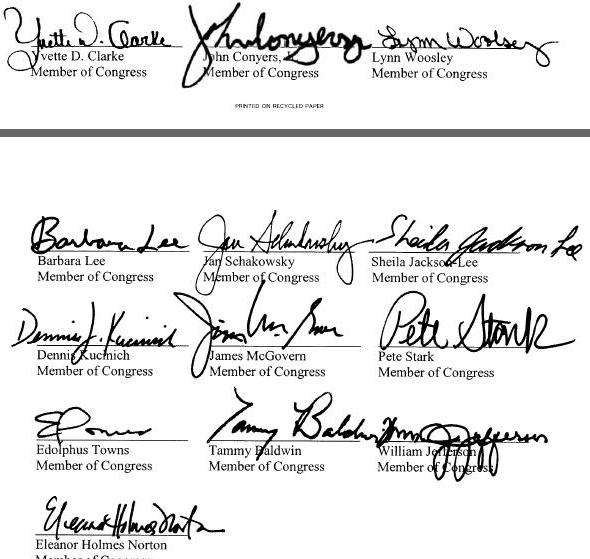 Yvette D. Clarke John Conyers Lynn Woolsey
Yvette D. Clarke John Conyers, Jr. Lynn Woosley
Member of Congress Member of Congress Member of Congress
PRINTED ON RECYCLED PAPER
Barbara Lee Jan Schakowsky Sheila Jackson Lee
Barbara Lee Jan Schakowsky Sheila Jackson-Lee
Member of Congress Member of Congress Member of Congress
Dennis J. Kucinich Jim McGovern Pete Stark
Dennis Kucinich James McGovern Pete Stark
Member of Congress Member of Congress Member of Congress
Tammy Baldwin Wm J. Jefferson
Edolphus Towns Tammy Baldwin William Jefferson
Member of Congress Member of Congress Member of Congress
Eleanor Holmes Norton
Eleanor Holmes Norton
Member of Congress